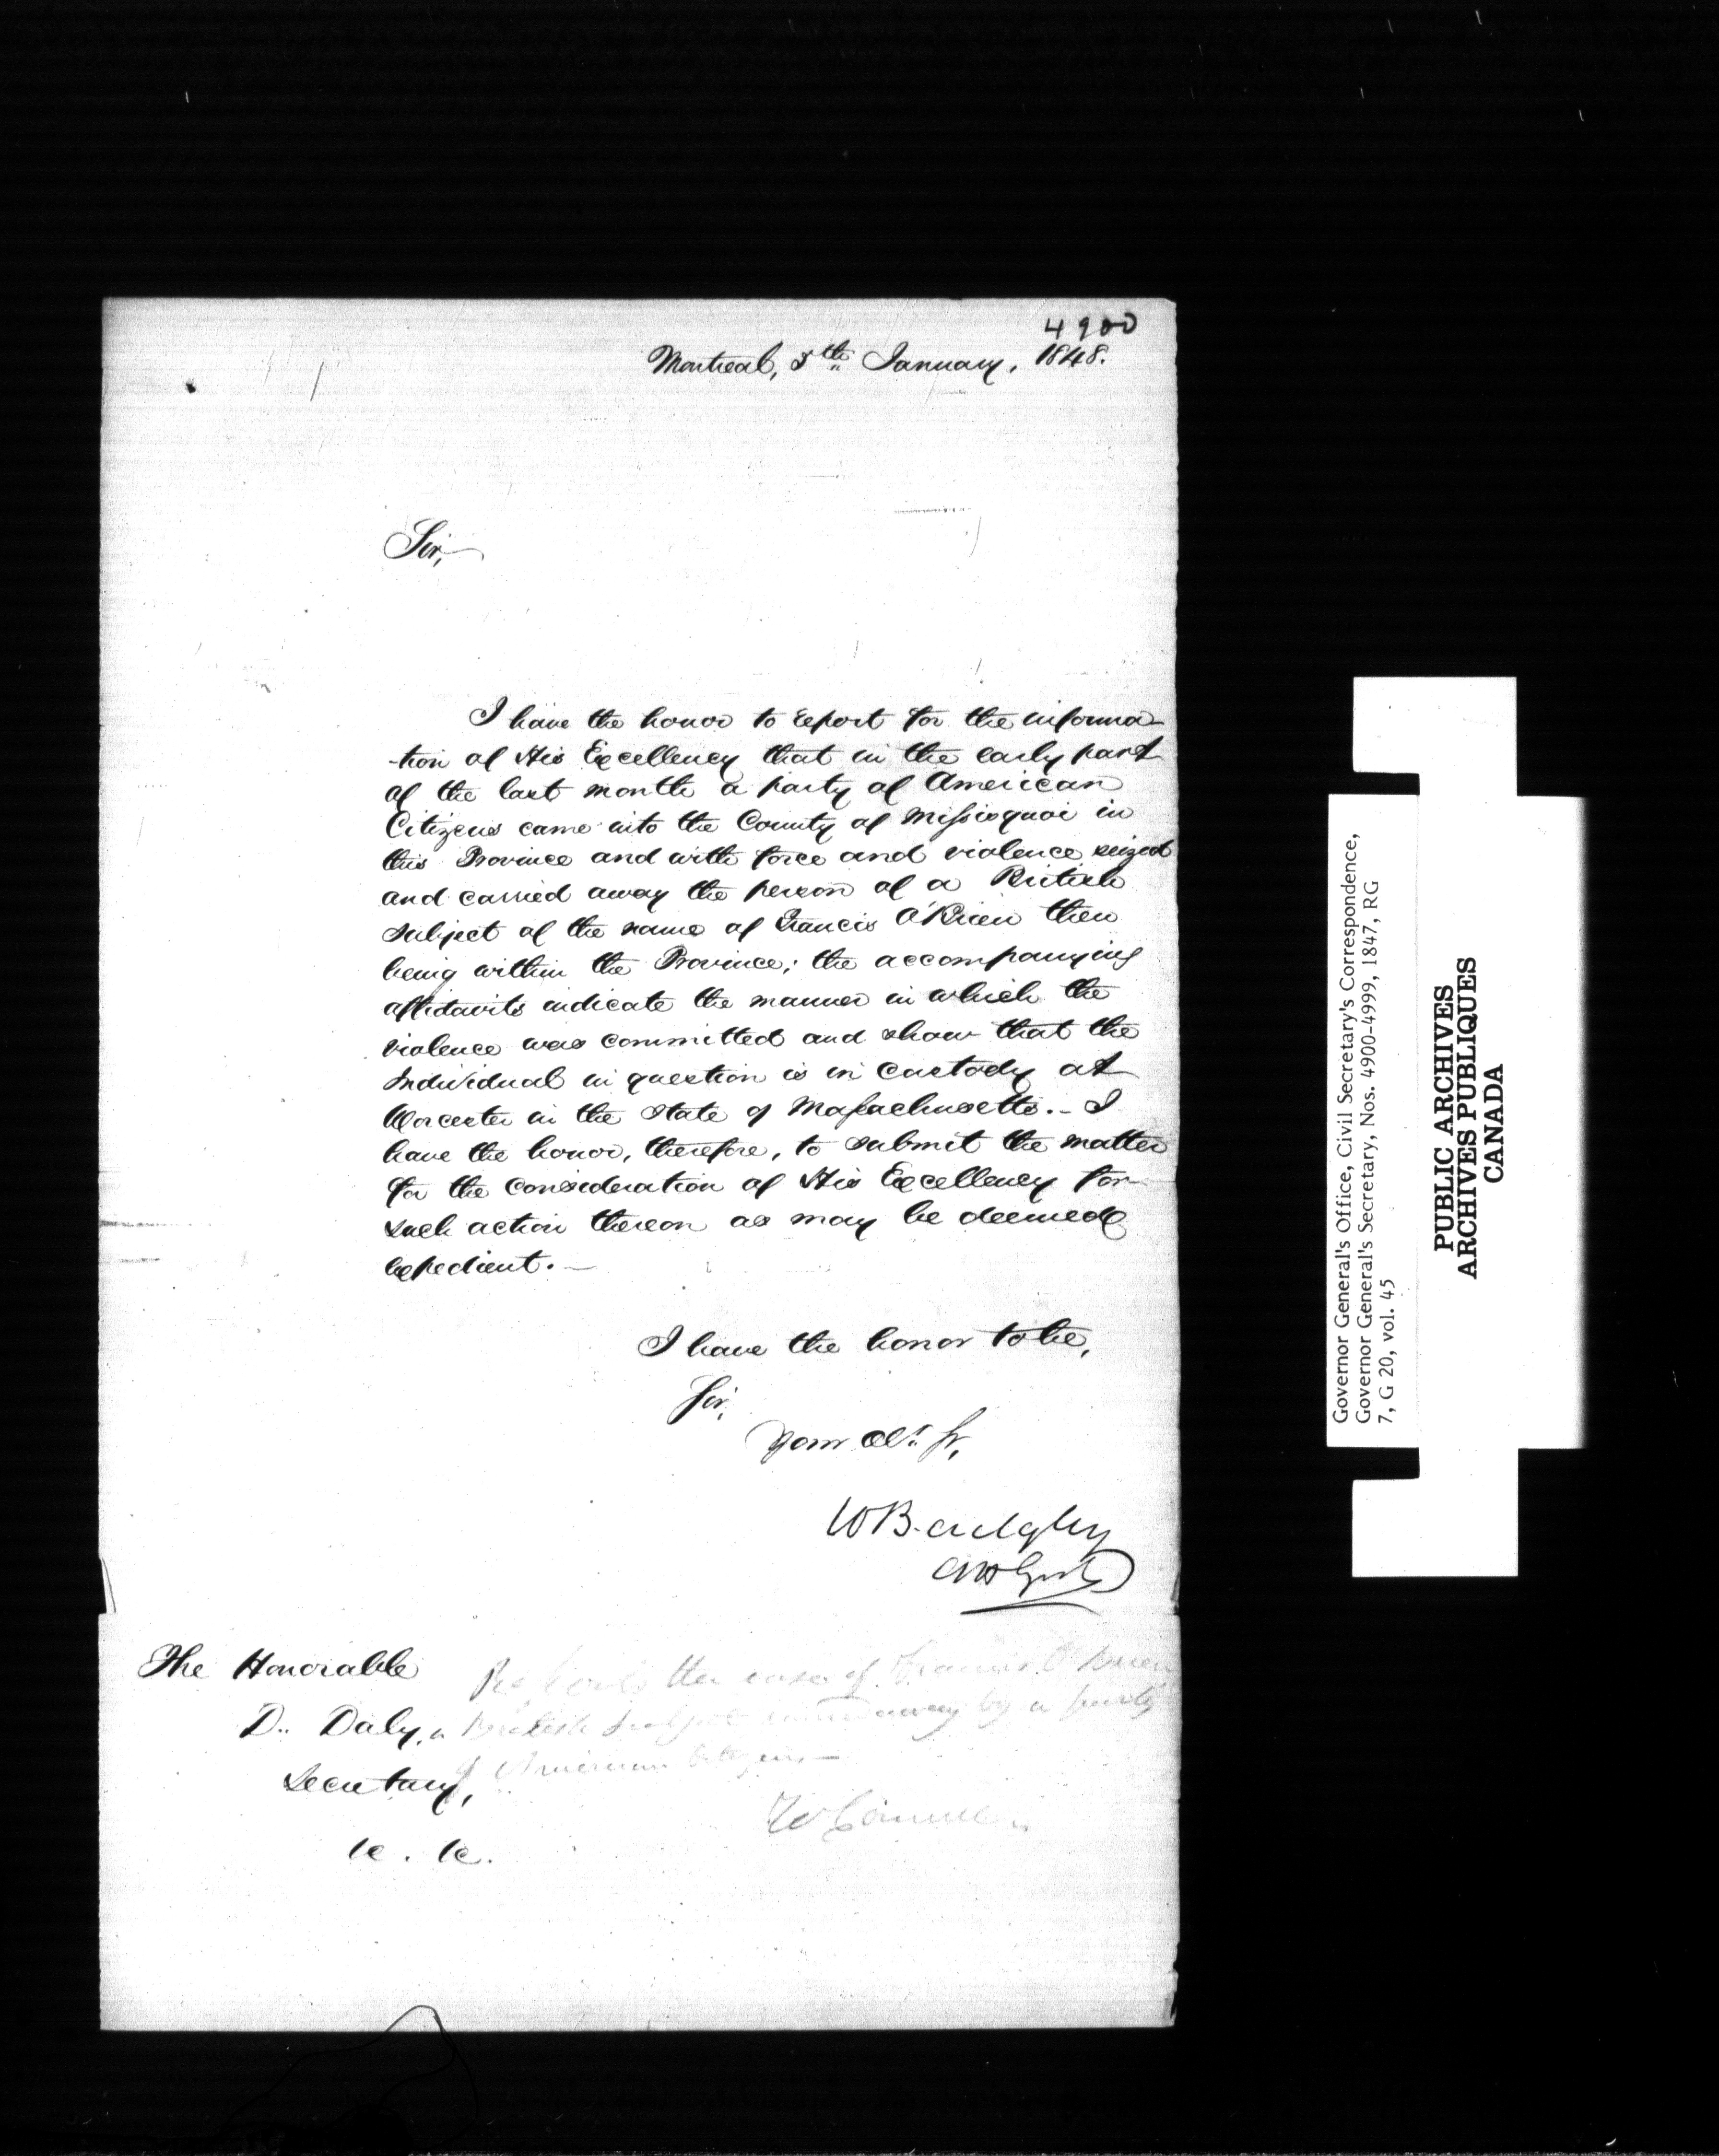 4900
Montreal, 5th January, 1848.
Sir,
I have the honor to report for the informa-
-tion of His Excellency that in the early part
of the last month a party of American
Citizens came into the County of Missisquoi in
this Province and with force and violence seized
and carried away the person of a British
subject of the name of Francis O'Brien then
being within the Province; the accompanying
affidavits indicate the manner in which the
violence was committed and show that the
Individual in question is in custody at
Worcester in the State of Massachusetts. - I
have the honor, therefore, to submit the matter
for the consideration of His Excellency for
such action thereon as may be deemed
expedient. -
I have the honor to be,
Sir,
Your Obt. Sr.
W Badgley
The Honorable
D. Daly,
Secretary,
&c. &c.
the case of Francis O'Brien
a British Subject carried away by a party
of American Citizens -
Governor General's Office, Civil Secretary's Correspondence,
Governor General's Secretary, Nos. 4900-4999, 1847, RG
7, G 20, vol. 45
PUBLIC ARCHIVES
ARCHIVES PUBLIQUES
CANADA